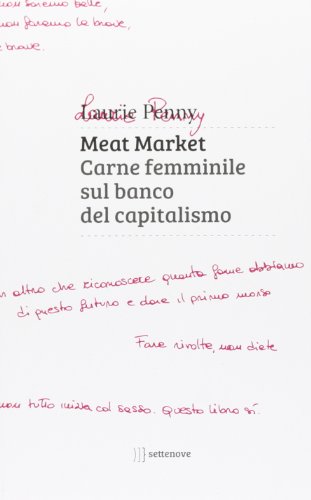 non saremo belle,
non saremo le brave,
e brave.
Laurie Penny
Laurie Penny
Meat Market
Carne femminile
sul banco
del capitalismo
altro che riconoscere quanta fame abbiamo
di questo futuro e dare il primo morso
Fare rivolte, non diete
non tutto inizia col sesso. Questo libro sì.
settenove